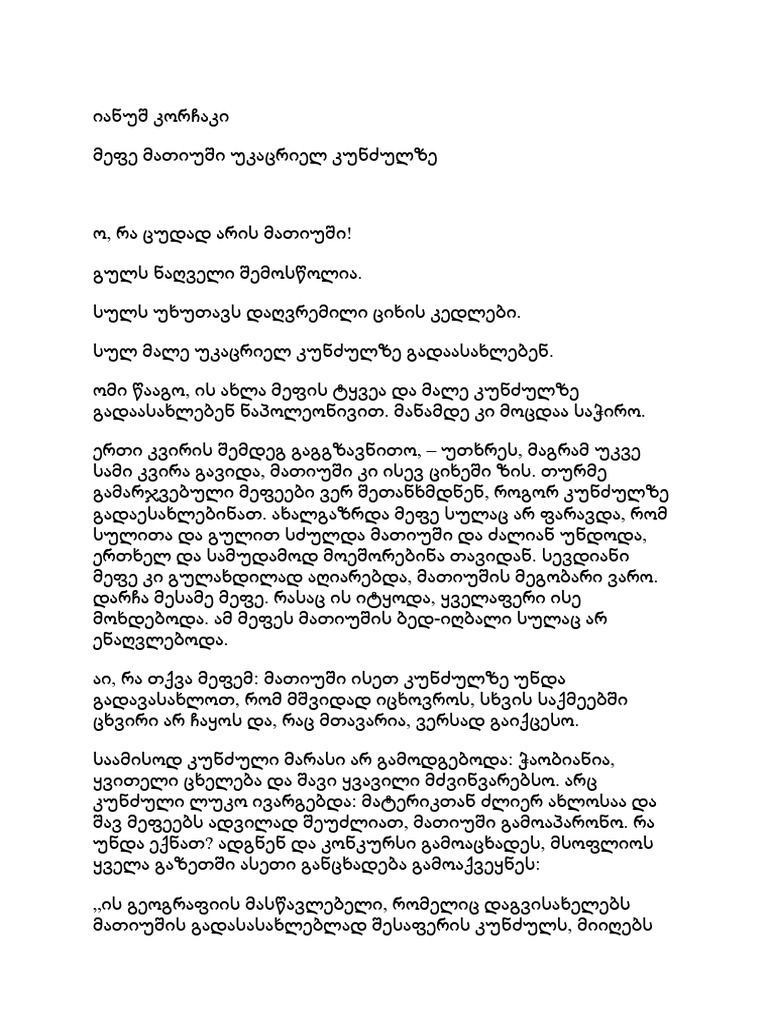 იანუშ კორჩაკი
მეფე მათიუში უკაცრიელ კუნძულზე
ო, რა ცუდად არის მათიუში!
გულს ნაღველი შემოსწოლია.
სულს უხუთავს დაღვრემილი ციხის კედლები.
სულ მალე უკაცრიელ კუნძულზე გადაასახლებენ.
ომი წააგო, ის ახლა მეფის ტყვეა და მალე კუნძულზე
გადაასახლებენ ნაპოლეონივით. მანამდე კი მოცდაა საჭირო.
ერთი კვირის შემდეგ გაგგზავნითო, – უთხრეს, მაგრამ უკვე
სამი კვირა გავიდა, მათიუში კი ისევ ციხეში ზის. თურმე
გამარჯვებული მეფეები ვერ შეთანხმდნენ, როგორ კუნძულზე
გადაესახლებინათ. ახალგაზრდა მეფე სულაც არ ფარავდა, რომ
სულითა და გულით სძულდა მათიუში და ძალიან უნდოდა,
ერთხელ და სამუდამოდ მოეშორებინა თავიდან. სევდიანი
მეფე კი გულახდილად აღიარებდა, მათიუშის მეგობარი ვარო.
დარჩა მესამე მეფე. რასაც ის იტყოდა, ყველაფერი ისე
მოხდებოდა. ამ მეფეს მათიუშის ბედ-იღბალი სულაც არ
ენაღვლებოდა.
აი, რა თქვა მეფემ: მათიუში ისეთ კუნძულზე უნდა
გადავასახლოთ, რომ მშვიდად იცხოვროს, სხვის საქმეებში
ცხვირი არ ჩაყოს და, რაც მთავარია, ვერსად გაიქცესო.
საამისოდ კუნძული მარასი არ გამოდგებოდა: ჭაობიანია,
ყვითელი ცხელება და შავი ყვავილი მძვინვარებსო. არც
კუნძული ლუკო ივარგებდა: მატერიკთან ძლიერ ახლოსაა და
შავ მეფეებს ადვილად შეუძლიათ, მათიუში გამოაპარონო. რა
უნდა ექნათ? ადგნენ და კონკურსი გამოაცხადეს, მსოფლიოს
ყველა გაზეთში ასეთი განცხადება გამოაქვეყნეს:
,,ის გეოგრაფიის მასწავლებელი, რომელიც დაგვისახელებს
მათიუშის გადასასახლებლად შესაფერის კუნძულს, მიიღებს